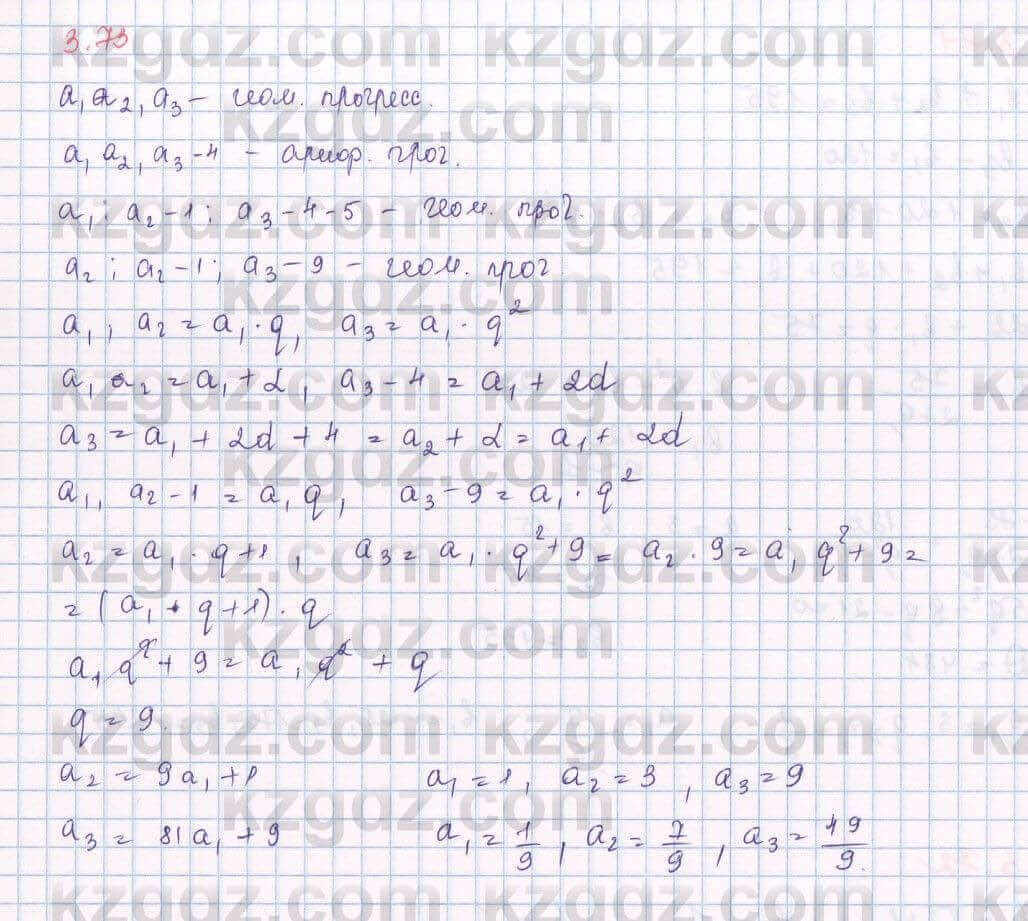 3.73
a₁ a₂, a₃ – геом. прогресс.
a₁ a₂, a₃-4 – арифр. прог.
a₁; a₂-1; a₃-4-5 – геом. прог.
a₂; a₂-1; a₃-9 – геом. прог
a₁, a₂ = a₁·q, a₃ = a₁·q²
a₁ a₂ = a₁+d, a₃-4 = a₁+2d
a₃ = a₁+2d+4 = a₂+d = a₁+2d
a₁, a₂-1 = a₁q, a₃-9 = a₁·q²
a₂ = a₁·q+1, a₃ = a₁·q²+9 = a₂·9 = a₁q²+9 =
= (a₁·q+1)·q
a₁q²+9 = a₁q²+q
q = 9.
a₂ = 9a₁+1 a₁=1, a₂=3, a₃=9
a₃ = 81a₁+9 a₁=1/9, a₂=7/9, a₃=49/9.
kzgdz.com